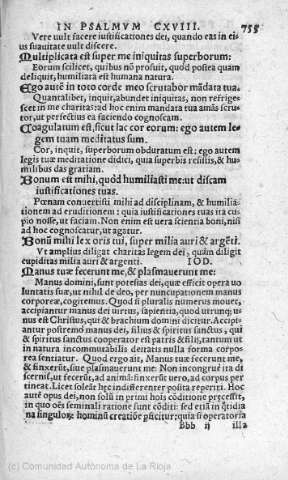 IN PSALMVM CXVIII. 755
Vere vult facere iustificationes dei, quando eas in eius
suauitate vult discere.
Multiplicata est super me iniquitas superborum:
Eorum scilicet, quibus nõ profuit, quod postea quam
deliquit, humiliata est humana natura.
Ego autē in toto corde meo scrutabor mādata tua.
Quantalibet, inquit, abundet iniquitas, non refriges-
cet in me charitas: ad hoc enim mandata tua amās scru-
tor, vt perfectius ea faciendo cognoscam.
Coagulatum est, sicut lac cor eorum: ego autem le-
gem tuam meditatus sum.
Cor, inquit, superborum obduratum est: ego autem
legis tuæ meditatione didici, quia superbis resistis, & hu-
milibus das gratiam.
Bonum est mihi, quòd humiliasti me: ut discam
iustificationes tuas.
Pœnam conuertisti mihi ad disciplinam, & humilia-
tionem ad eruditionem: quia iustificationes tuas ita cu-
pio nosse, ut faciam. Non enim est uera scientia boni, nisi
ad hoc cognoscatur, ut agatur.
Bonū mihi lex oris tui, super milia auri & argēti.
Vt amplius diligat charitas legem dei, quàm diligit
cupiditas milia auri & argenti. IOD.
Manus tuæ fecerunt me, & plasmauerunt me:
Manus domini, sunt potestas dei, quæ efficit opera vo
luntatis suæ, ut nihil de deo, per nuncupationem manus
corporeæ, cogitemus. Quod si pluralis numerus mouet,
accipiantur manus dei uirtus, sapientia, quod utrunq; u-
nus est Christus, qui & brachium domini dicitur. Accipi-
antur postremo manus dei, filius & spiritus sanctus, qui
& spiritus sanctus cooperator est patris & filij, tantum ut
in natura incommutabilis deitatis nulla forma corpo-
rea sentiatur. Quod ergo ait, Manus tuæ fecerunt me,
& finxerūt, siue plasmauerunt me: Non incongruè ita di
scernis, ut fecerūt, ad animā: finxerūt uero, ad corpus per
tineat. Licet soleāt hęc indifferenter posita reperiri. Hoc
autē opus dei, non solū in primi hoīs cōditione pręcessit,
in quo oēs seminali ratione sunt cōditi: sed etiā in q̄tidia
na singulorū hominū creatiōe pficitur; quia si operatoria
Bbb ij illa
(c) Comunidad Autónoma de La Rioja